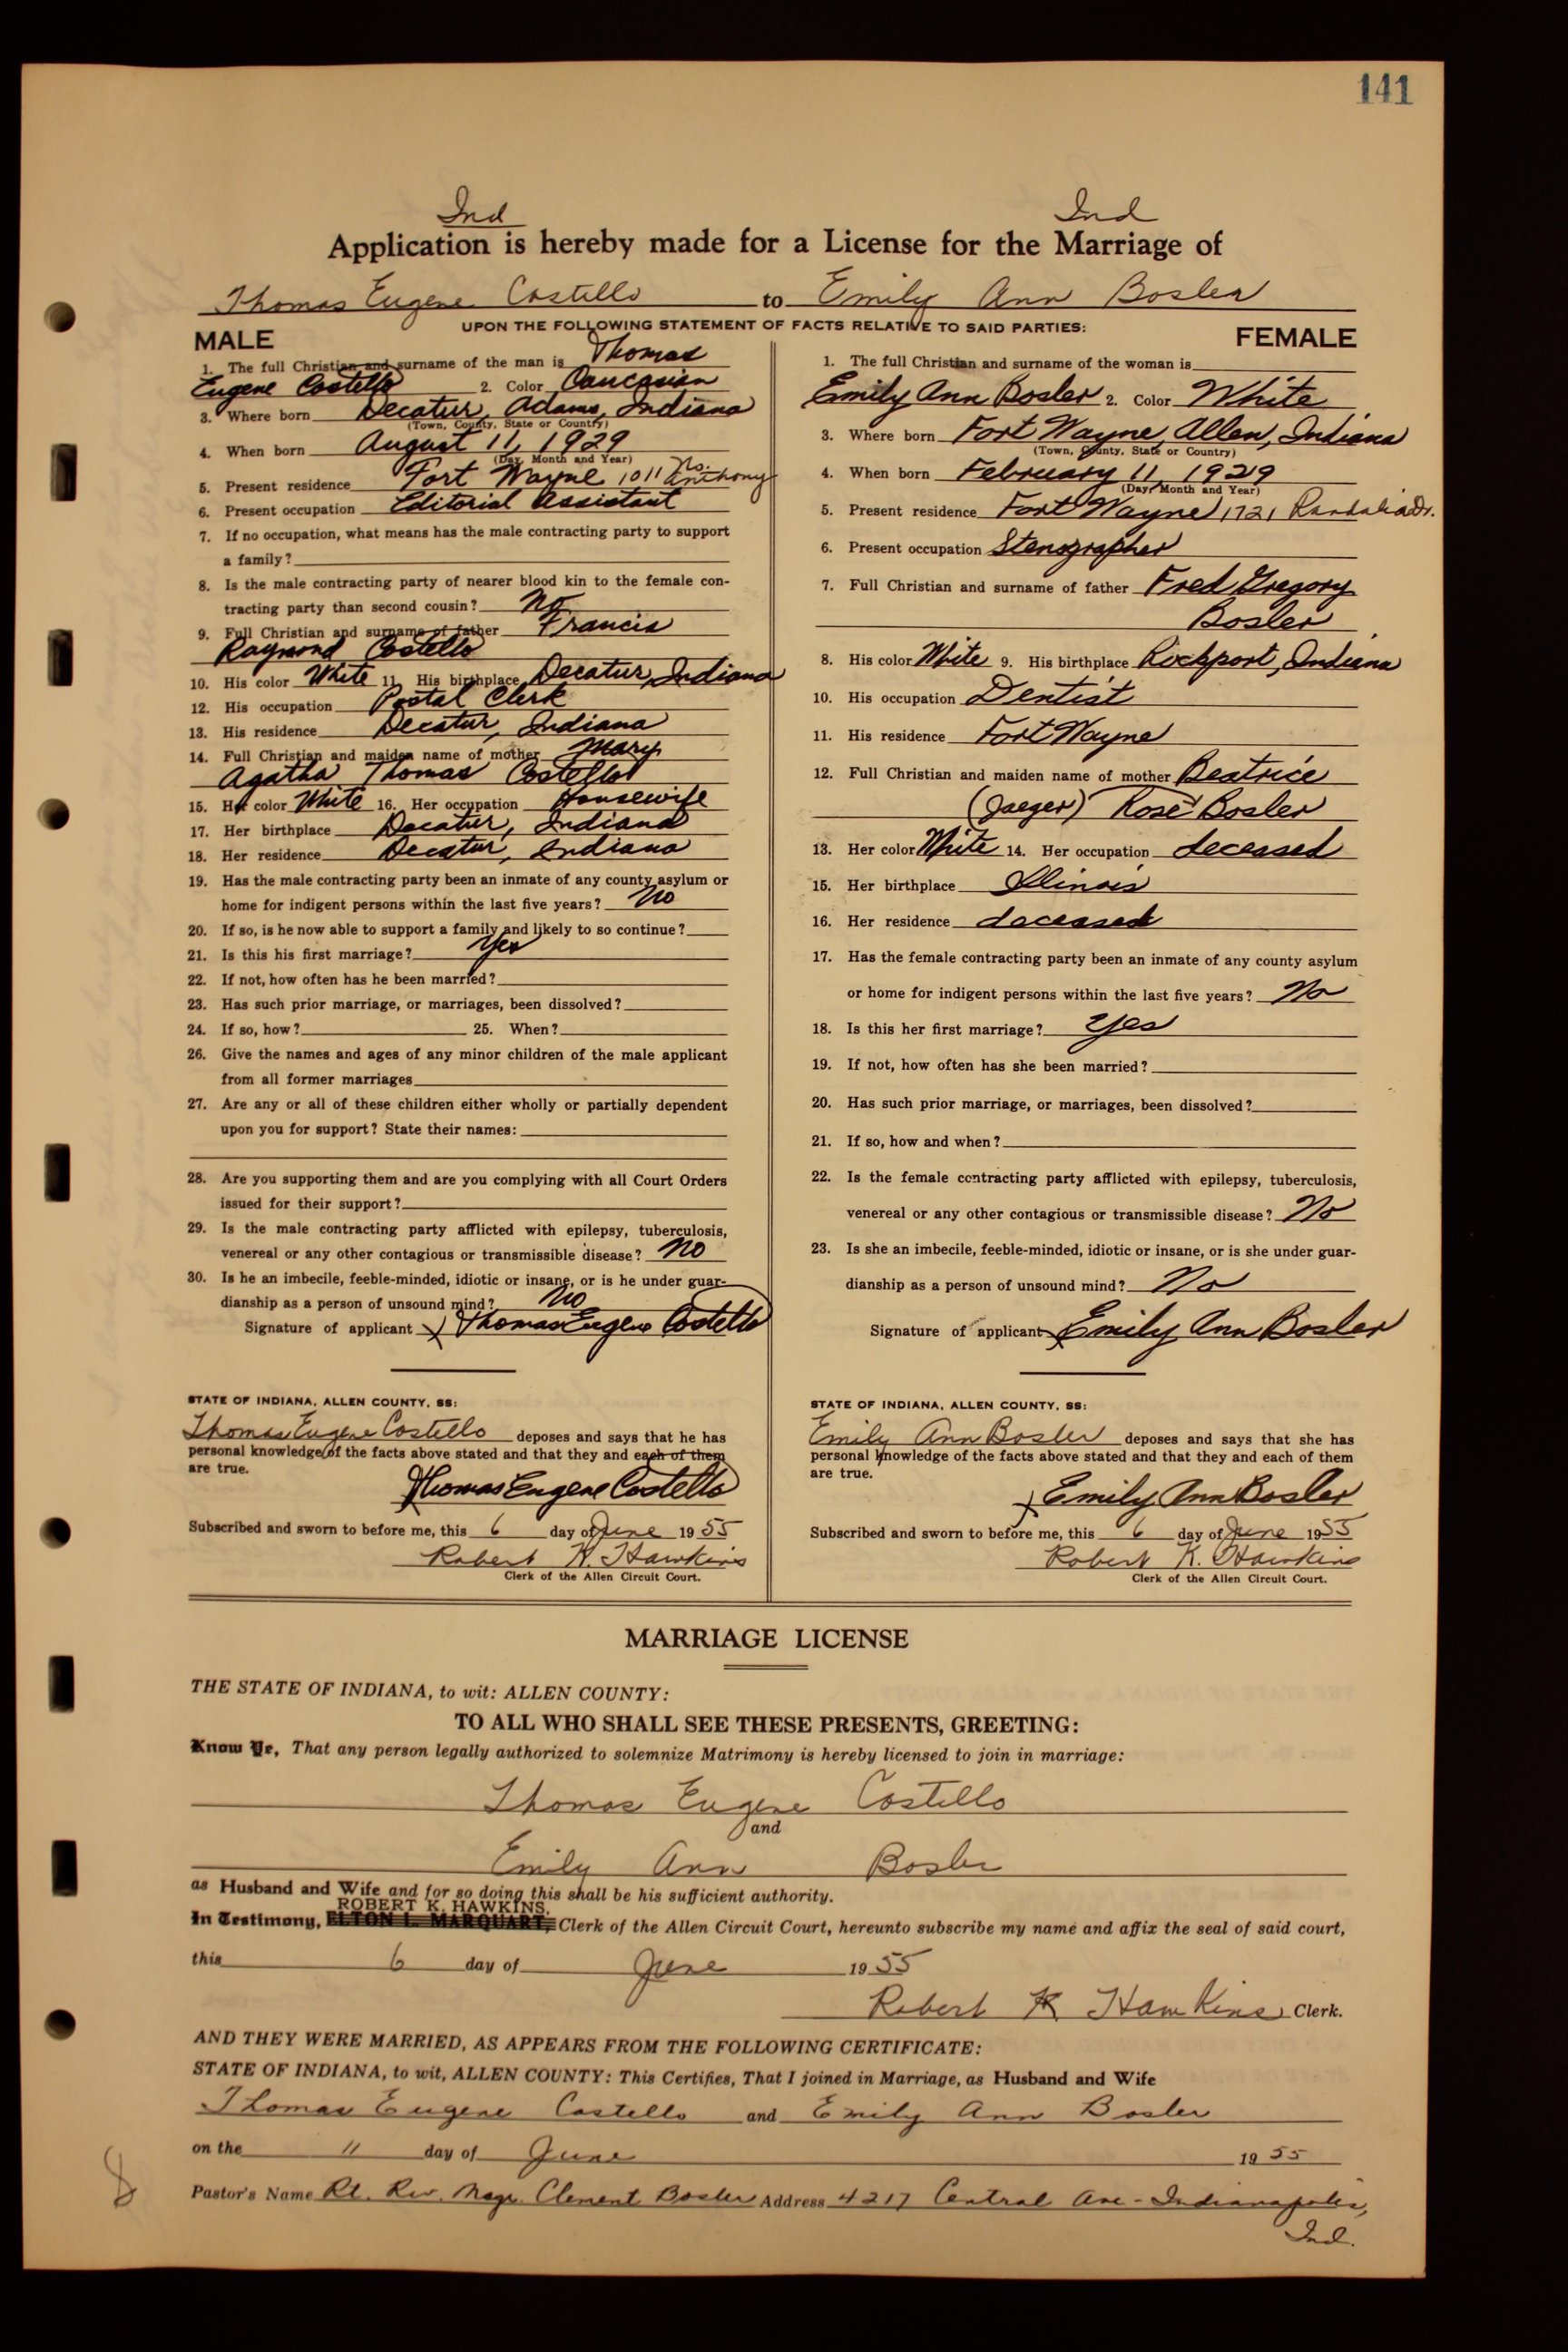 141
Ind Ind
Application is hereby made for a License for the Marriage of
Thomas Eugene Costello to Emily Ann Bosler
UPON THE FOLLOWING STATEMENT OF FACTS RELATIVE TO SAID PARTIES:
MALE
1. The full Christian and surname of the man is Thomas
Eugene Costello 2. Color Caucasian
3. Where born Decatur, Adams, Indiana
(Town, County, State or Country)
4. When born August 11, 1929
(Day, Month and Year)
5. Present residence Fort Wayne 1011 No. Anthony
6. Present occupation Editorial Assistant
7. If no occupation, what means has the male contracting party to support
a family?
8. Is the male contracting party of nearer blood kin to the female con-
tracting party than second cousin? No
9. Full Christian and surname of father Francis
Raymond Costello
10. His color White 11. His birthplace Decatur, Indiana
12. His occupation Postal Clerk
13. His residence Decatur, Indiana
14. Full Christian and maiden name of mother Mary
Agatha Thomas Costello
15. Her color White 16. Her occupation Housewife
17. Her birthplace Decatur, Indiana
18. Her residence Decatur, Indiana
19. Has the male contracting party been an inmate of any county asylum or
home for indigent persons within the last five years? No
20. If so, is he now able to support a family and likely to so continue?
21. Is this his first marriage? Yes
22. If not, how often has he been married?
23. Has such prior marriage, or marriages, been dissolved?
24. If so, how? 25. When?
26. Give the names and ages of any minor children of the male applicant
from all former marriages
27. Are any or all of these children either wholly or partially dependent
upon you for support? State their names:
28. Are you supporting them and are you complying with all Court Orders
issued for their support?
29. Is the male contracting party afflicted with epilepsy, tuberculosis,
venereal or any other contagious or transmissible disease? No
30. Is he an imbecile, feeble-minded, idiotic or insane, or is he under guar-
dianship as a person of unsound mind? No
Signature of applicant x Thomas Eugene Costello
STATE OF INDIANA, ALLEN COUNTY, SS:
Thomas Eugene Costello deposes and says that he has
personal knowledge of the facts above stated and that they and each of them
are true.
Thomas Eugene Costello
Subscribed and sworn to before me, this 6 day of June 1955
Robert K. Hawkins
Clerk of the Allen Circuit Court.
FEMALE
1. The full Christian and surname of the woman is
Emily Ann Bosler 2. Color White
3. Where born Fort Wayne, Allen, Indiana
(Town, County, State or Country)
4. When born February 11, 1929
(Day, Month and Year)
5. Present residence Fort Wayne 1721 Dr.
6. Present occupation Stenographer
7. Full Christian and surname of father Fred Gregory
Bosler
8. His color White 9. His birthplace Rockport, Indiana
10. His occupation Dentist
11. His residence Fort Wayne
12. Full Christian and maiden name of mother Beatrice
(Jaeger) Rose Bosler
13. Her color White 14. Her occupation deceased
15. Her birthplace Illinois
16. Her residence deceased
17. Has the female contracting party been an inmate of any county asylum
or home for indigent persons within the last five years? No
18. Is this her first marriage? Yes
19. If not, how often has she been married?
20. Has such prior marriage, or marriages, been dissolved?
21. If so, how and when?
22. Is the female contracting party afflicted with epilepsy, tuberculosis,
venereal or any other contagious or transmissible disease? No
23. Is she an imbecile, feeble-minded, idiotic or insane, or is she under guar-
dianship as a person of unsound mind? No
Signature of applicant x Emily Ann Bosler
STATE OF INDIANA, ALLEN COUNTY, SS:
Emily Ann Bosler deposes and says that she has
personal knowledge of the facts above stated and that they and each of them
are true.
x Emily Ann Bosler
Subscribed and sworn to before me, this 6 day of June 1955
Robert K. Hawkins
Clerk of the Allen Circuit Court.
MARRIAGE LICENSE
THE STATE OF INDIANA, to wit: ALLEN COUNTY:
TO ALL WHO SHALL SEE THESE PRESENTS, GREETING:
Know Ye, That any person legally authorized to solemnize Matrimony is hereby licensed to join in marriage:
Thomas Eugene Costello
and
Emily Ann Bosler
as Husband and Wife and for so doing this shall be his sufficient authority.
ROBERT K. HAWKINS.
In Testimony, ELTON L. MARQUART, Clerk of the Allen Circuit Court, hereunto subscribe my name and affix the seal of said court,
this 6 day of June 1955
Robert K Hawkins Clerk.
AND THEY WERE MARRIED, AS APPEARS FROM THE FOLLOWING CERTIFICATE:
STATE OF INDIANA, to wit, ALLEN COUNTY: This Certifies, That I joined in Marriage, as Husband and Wife
Thomas Eugene Costello and Emily Ann Bosler
on the 11 day of June 1955
Pastor's Name Rt. Rev. Msgr. Clement Bosler Address 4217 Central Ave - Indianapolis,
Ind.
8